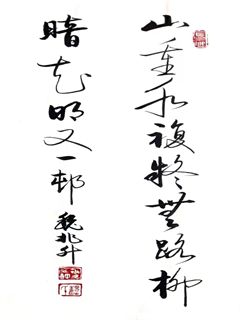 山重水複疑無路柳
暗花明又一邨
魏兆升